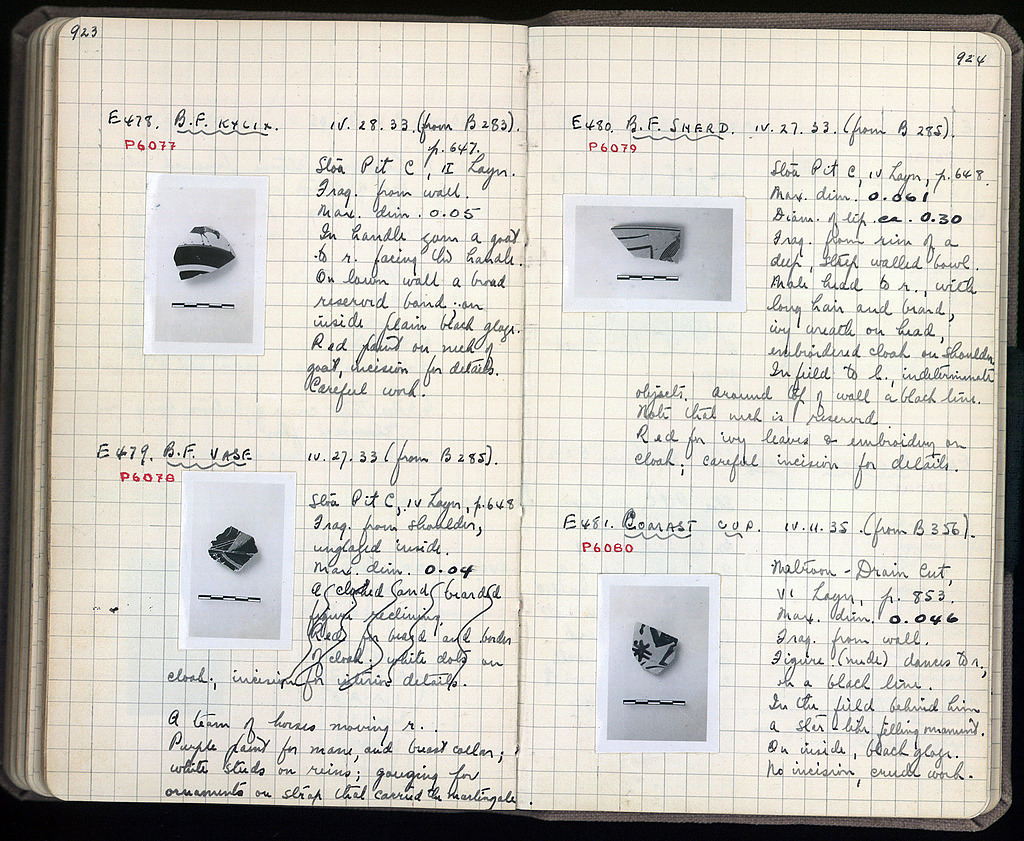 923
E 478. B.F. KYLIX. IV. 28. 33. (from B 283).
P6077 p. 647.
Stoa Pit C, II Layer.
Frag. from wall.
Max. dim. 0.05
In handle zone a goat
to r. facing the handle.
On lower wall a broad
reserved band; on
inside plain black glaze.
Red paint on neck of
goat, incision for details.
Careful work.
E 479. B.F. VASE IV. 27. 33 (from B 285).
P6078
Stoa Pit C, IV Layer, p. 648
Frag. from shoulder,
unglazed inside.
Max. dim. 0.04
A clothed and bearded
figure reclining.
Red for beard and border
of cloak; white dots on
cloak; incision for interior details.
A team of horses moving r.
Purple paint for mane, and breast collar;
white studs on reins; gouging for
ornaments on strap that carried the martingale.
924
E 480. B.F. SHERD. IV. 27. 33. (from B 285).
P6079
Stoa Pit C, IV Layer, p. 648.
Max. dim. 0.061
Diam. of lip ca. 0.30
Frag. from rim of a
deep, steep walled bowl.
Male head to r., with
long hair and beard,
ivy wreath on head,
embroidered cloak on shoulder
In field to l., indeterminate
objects. Around top of wall a black line.
Note that neck is reserved
Red for ivy leaves & embroidery on
cloak; careful incision for details.
E 481. COMAST CUP. IV. 11. 35. (from B 356).
P6080
Drain Cut,
VI Layer, p. 853.
Max. dim. 0.046
Frag. from wall.
Figure (nude) dances to r.,
on a black line.
In the field behind him
a star-like filling ornament.
On inside, black glaze.
No incision, crude work.